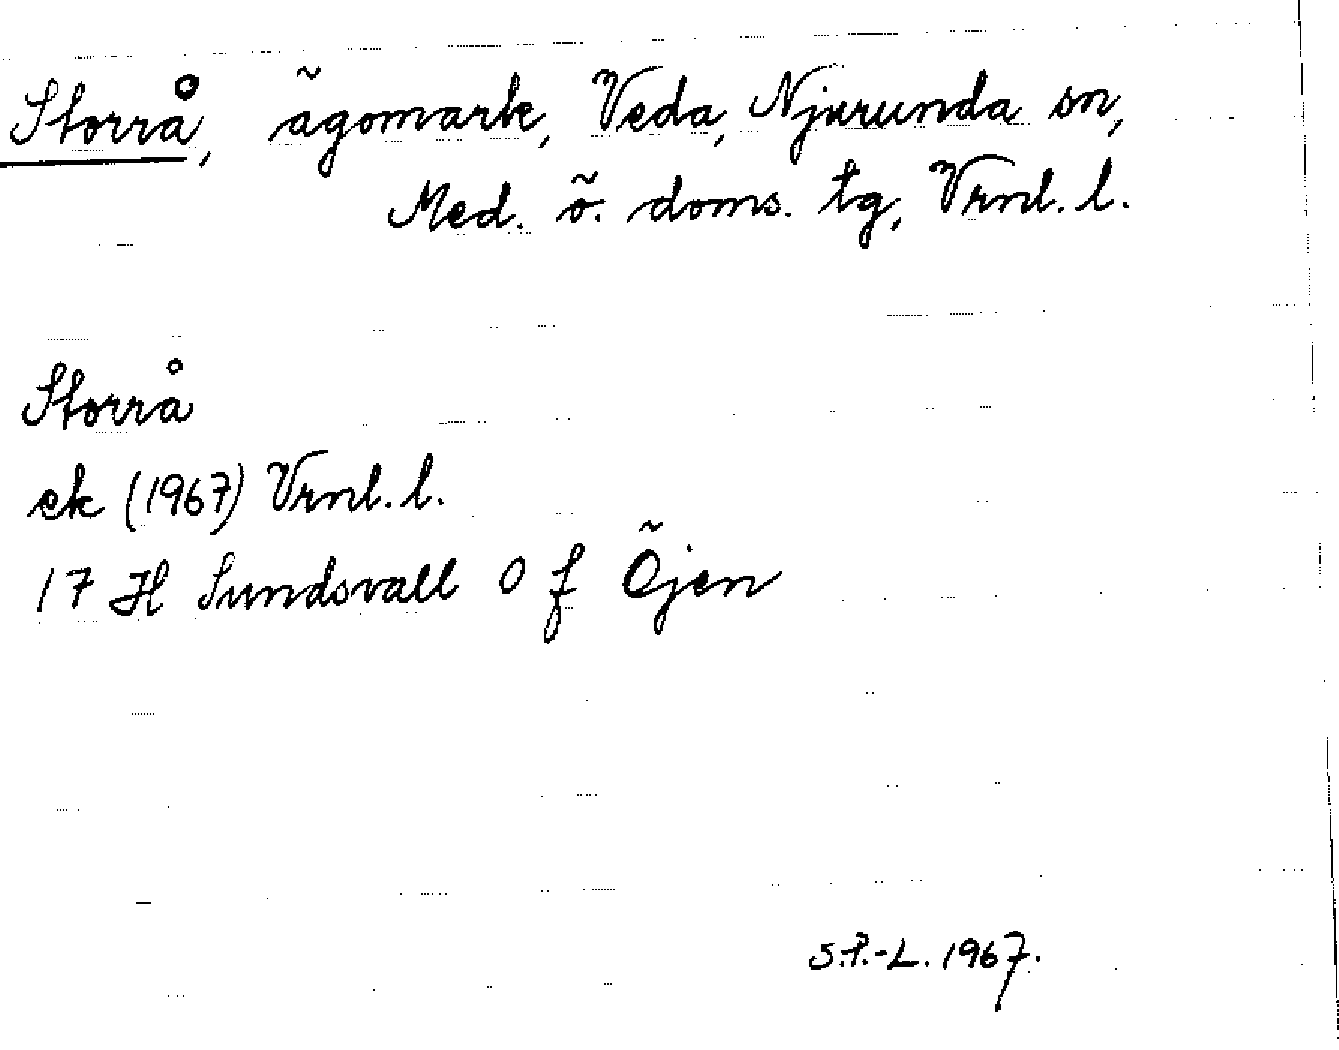 Storrå, ägomark, Veda, Njurunda sn,
Med. ö. doms. tg, Vrnl. l.
Storrå
ek (1967) Vrnl. l.
17 H Sundsvall 0 f Öjen
S.P.-L. 1967.